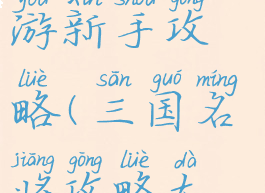 yóu xīn shǒu gōng
游新手攻
lüè sān guó míng
略(三国名
jiāng gōng lüè dà
将攻略大